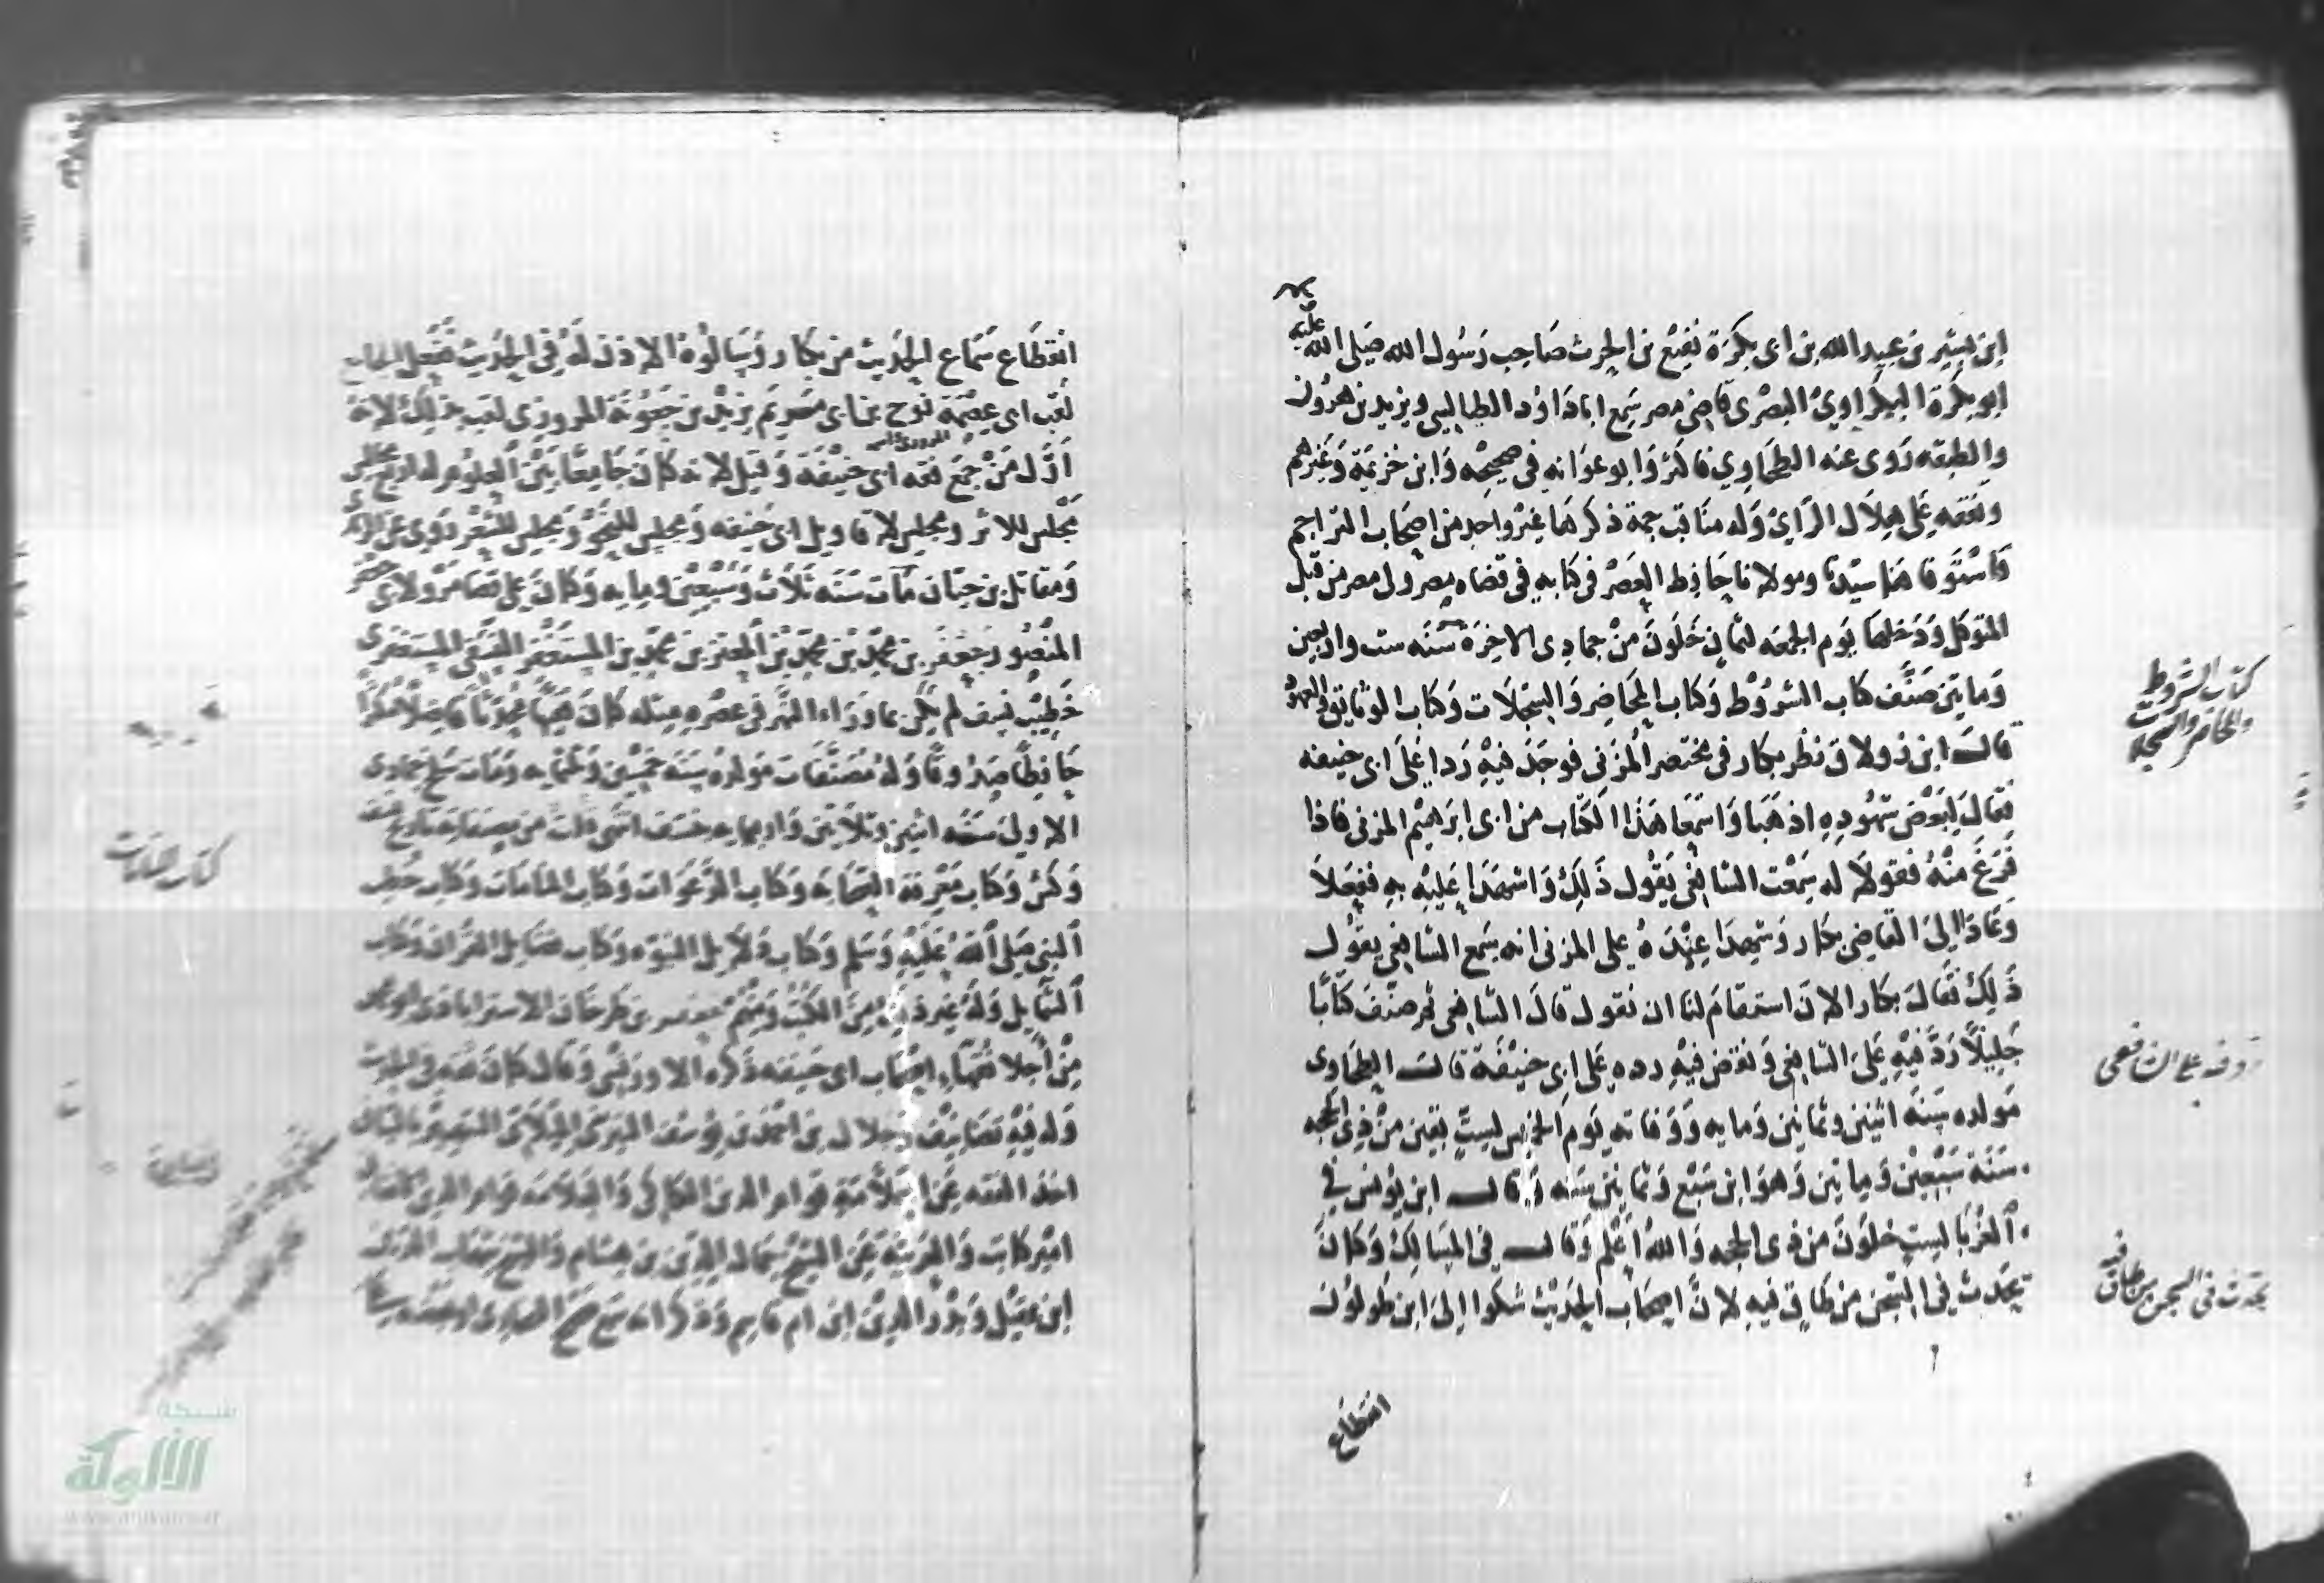 ابن بشير بن عبيد الله بن ابى بكرة نفيع بن الحرث صاحب رسول الله صلى الله عليه
ابو بكرة البكراوي البصرى قاضى مصر سمع ابا داوٗد الطيالسي ويزيد بن هرون
والطبقه روى عنه الطحاوي فاكثر وابو عوانه في صحيحه وابن خزيمة وغيرهم
وتفقه على هلال الراي وله مناقب جمة ذكرها غير واحد من اصحاب التراجم
فاستوفاها سيدنا ومولانا حافظ العصر في كتابه في قضاه مصر ولى مصر من قبل
المتوكل ودخلها يوم الجمعه لثمان خلون من جمادى الاخرة سنه ست واربعين
وماتين صنف كتاب الشروط وكتاب المحاضر والسجلات وكتاب الوثايق والعهود
قال ابن زولاق نظر بكار في مختصر المزني فوجد فيه ردا على ابى حنيفه
فقال لبعض شهوده اذهبا واسمعا هذا الكتاب من ابى ابرهيم المزنى فاذا
فرغ منه فقولا له سمعت الشافعى يقول ذلك واشهدا عليه به ففعلا
وعادا الى القاضى بكار وشهدا عنده على المزنى انه سمع الشافعى يقول
ذلك فقال بكار الان استقام لنا ان نقول قال الشافعى ثم صنف كتابا
جليلا رد فيه على الشافعى ونقض فيه رده على ابى حنيفة قال الطحاوى
مولده سنة اثنين وثمانين ومايه ووفاته يوم الخميس لست بقين من ذي الحجه
سنة سبعين وماتين وهو ابن سبع وثمانين سنه وقال ابن يونس في
الغربا لست خلون من ذى الحجه والله اعلم وقال في المسالك وكان
يحدث في السجن من طاق فيه لان اصحاب الحديث شكوا الى ابن طولون
انقطاع
كتاب الشروط
والمحاضر والسجلات
رد فيه على الشافعى
يحدث في السجن من طاق فيه
انقطاع سماع الحديث من بكار وسالوه الاذن له في الحديث ففعل الجامع
لقب ابى عصمة نوح بن ابى مريم يزيد بن جعونة المروزى لقب بذلك لانه
اول من جمع فقه ابى حنيفة وقيل لانه كان جامعا بين العلوم له اربع مجالس
مجلس للاثر ومجلس لاقاويل ابى حنيفه ومجلس للنحو ومجلس للشعر روى عن الزهرى
ومقاتل بن حيان مات سنه ثلاث وسبعين ومايه وكان على قضا مرو لابى جعفر
المنصور جعفر بن محمد بن محمد بن المعتز بن محمد بن المستغفر النسفى المستغفرى
خطيب نسف لم يكن بما وراء النهر في عصره مثله كان فقيها محدثا فاضلا مكثرا
حافظا صدوقا وله مصنفات مولده سنه خمسين وثلثمايه ومات سلخ جمادى
الاولى سنه اثنين وثلاثين واربعمايه بنسف انتهى قلت من مصنفاته تاريخ نسف
وكش وكتاب معرفة الصحابة وكتاب الدعوات وكتاب المنامات وكتاب خطب
النبى صلى الله عليه وسلم وكتاب دلايل النبوه وكتاب فضايل القران وكتاب
الشمايل وله غير ذلك من الكتب جعفر بن طرخان الاستراباذى ابو محمد
من اجلا فقهاء اصحاب ابى حنيفه ذكره الادريسى وقال كان ثقه في الحديث
وله فيه تصانيف جلال بن احمد بن يوسف التيزينى
اخذ الفقه عن العلامة قوام الدين الكاكى والعلامة قوام الدين
امير كاتب والعربية عن الشيخ جمال الدين بن هشام والشيخ بهاء الدين
ابن عقيل وبدر الدين ابن ام قاسم
شبكة
الألوكة
www.alukah.net